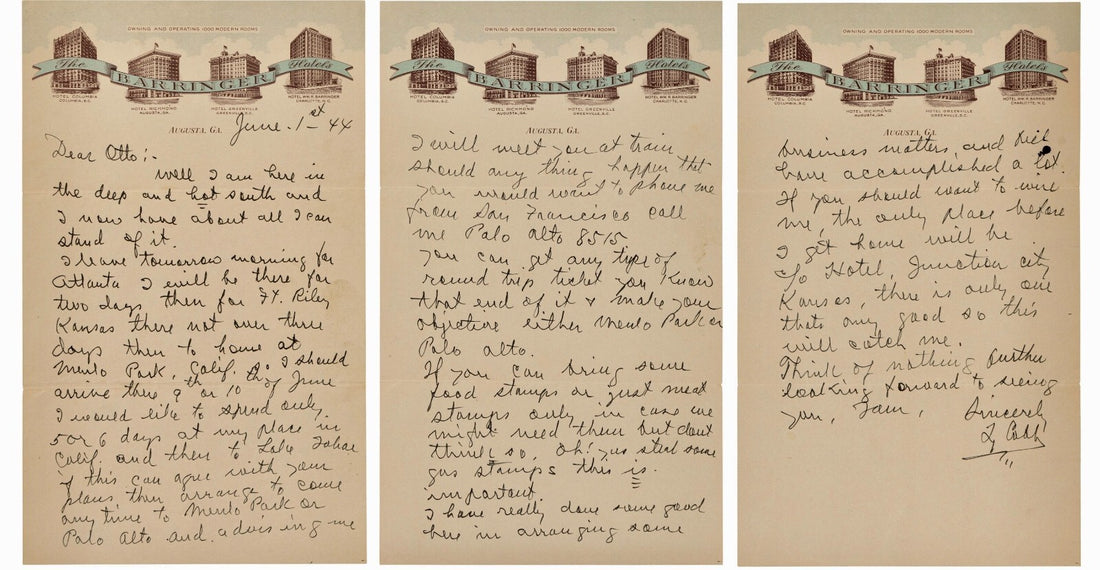 OWNING AND OPERATING 1000 MODERN ROOMS
The BARRINGER Hotels
HOTEL COLUMBIA
COLUMBIA, S.C.
HOTEL RICHMOND
AUGUSTA, GA.
HOTEL GREENVILLE
GREENVILLE, S.C.
HOTEL WM. R. BARRINGER
CHARLOTTE, N.C.
AUGUSTA, GA.
June. 1st – 44
Dear Otto:-
Well I am here in
the deep and hot south and
I now have about all I can
stand of it.
I leave tomorrow morning for
Atlanta I will be there for
two days then for Ft. Riley
Kansas there not over three
days then to home at
Menlo Park, Calif. So I should
arrive there 9th or 10th of June
I would like to spend only
5 or 6 days at my place in
Calif. and then to Lake Tahoe
if this can agree with your
plans then arrange to come
any time to Menlo Park or
Palo Alto and advising me
OWNING AND OPERATING 1000 MODERN ROOMS
The BARRINGER Hotels
HOTEL COLUMBIA
COLUMBIA, S.C.
HOTEL RICHMOND
AUGUSTA, GA.
HOTEL GREENVILLE
GREENVILLE, S.C.
HOTEL WM. R. BARRINGER
CHARLOTTE, N.C.
AUGUSTA, GA.
I will meet you at train
should any thing happen that
you would want to phone me
from San Francisco call
me Palo Alto 8515
you can get any type of
round trip ticket you know
that end of it & make your
objective either Menlo Park or
Palo Alto.
If you can bring some
food stamps or just meat
stamps only in case we
might need them but dont
think so. Oh! yes steal some
gas stamps this is
important
I have really done some good
here in arranging some
OWNING AND OPERATING 1000 MODERN ROOMS
The BARRINGER Hotels
HOTEL COLUMBIA
COLUMBIA, S.C.
HOTEL RICHMOND
AUGUSTA, GA.
HOTEL GREENVILLE
GREENVILLE, S.C.
HOTEL WM. R. BARRINGER
CHARLOTTE, N.C.
AUGUSTA, GA.
business matters, and
have accomplished a lot.
If you should want to wire
me, the only place before
I get home will be
c/o Hotel, Junction city
Kansas, there is only one
thats any good so this
will catch me.
Think of nothing further
looking forward to seeing
you, I am, Sincerely
Ty Cobb